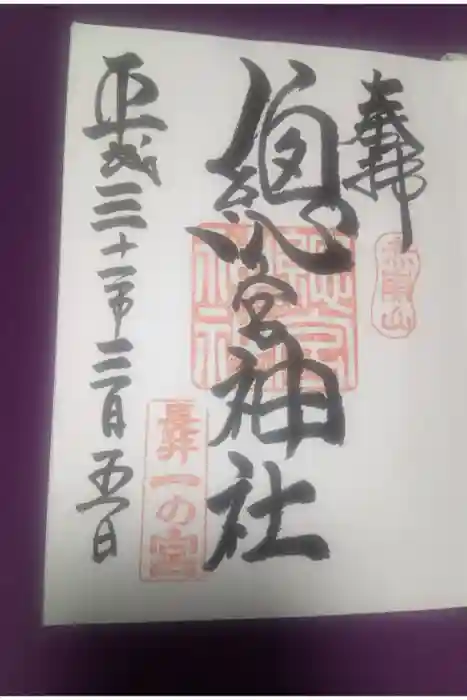 奉拝
總宮神社
總宮神社
長井一の宮
平成三十一年三月五日